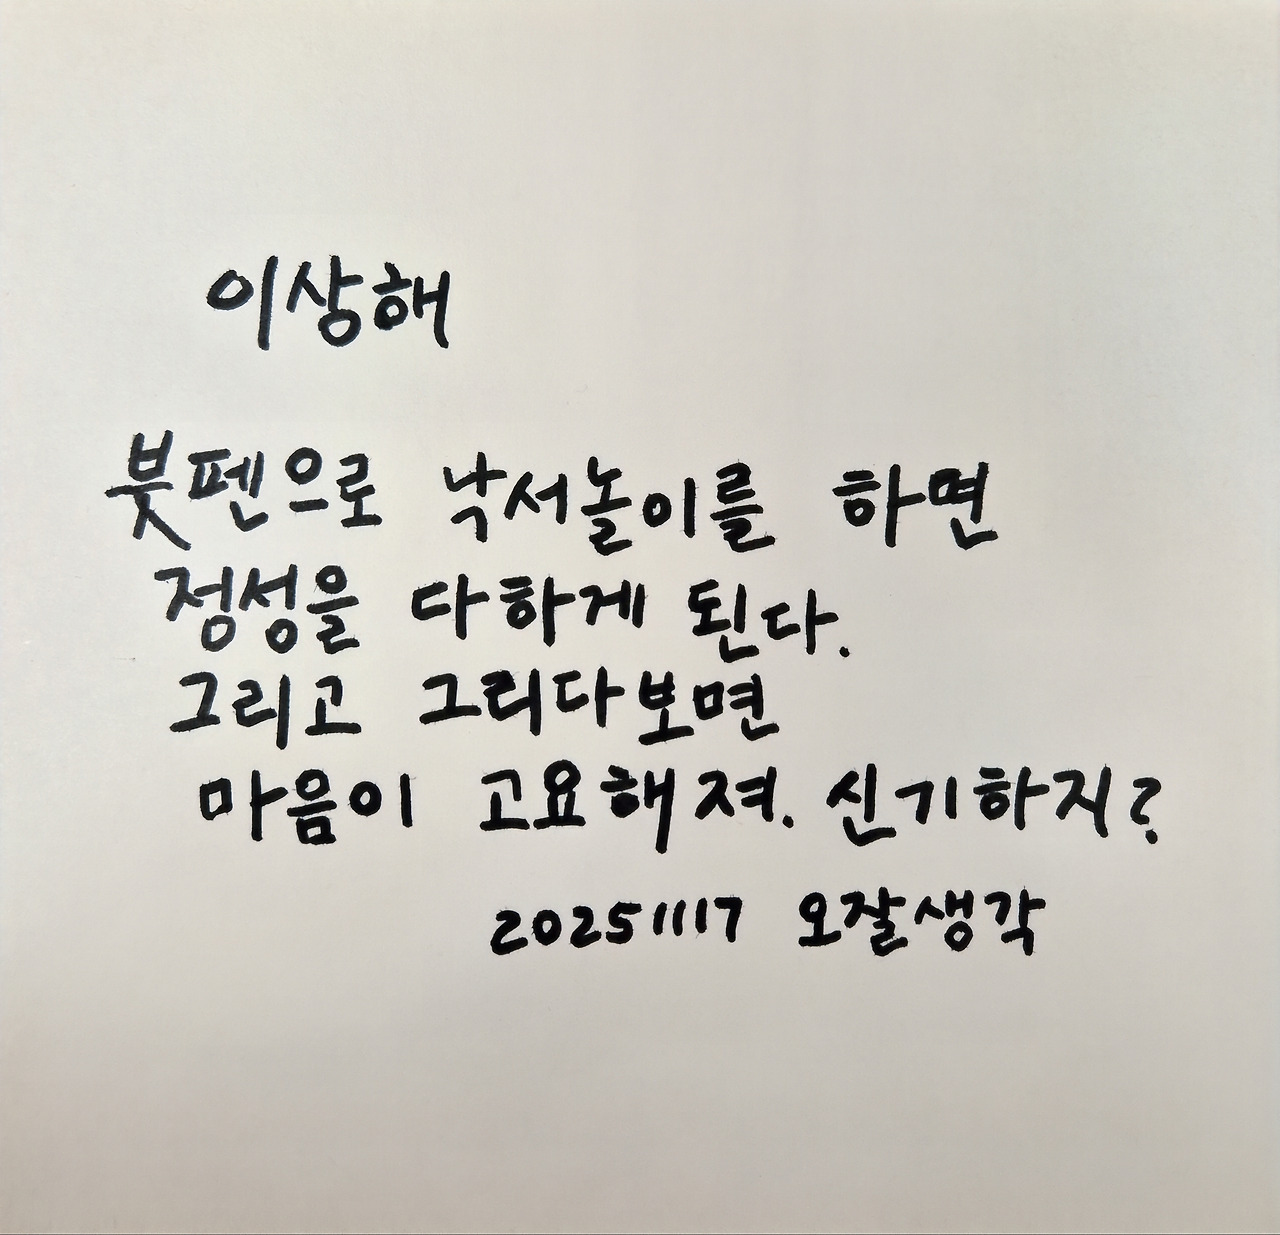 이상해
붓펜으로 낙서놀이를 하면
정성을 다하게 된다.
그리고 그리다보면
마음이 고요해져. 신기하지?
20251117 오잘생각